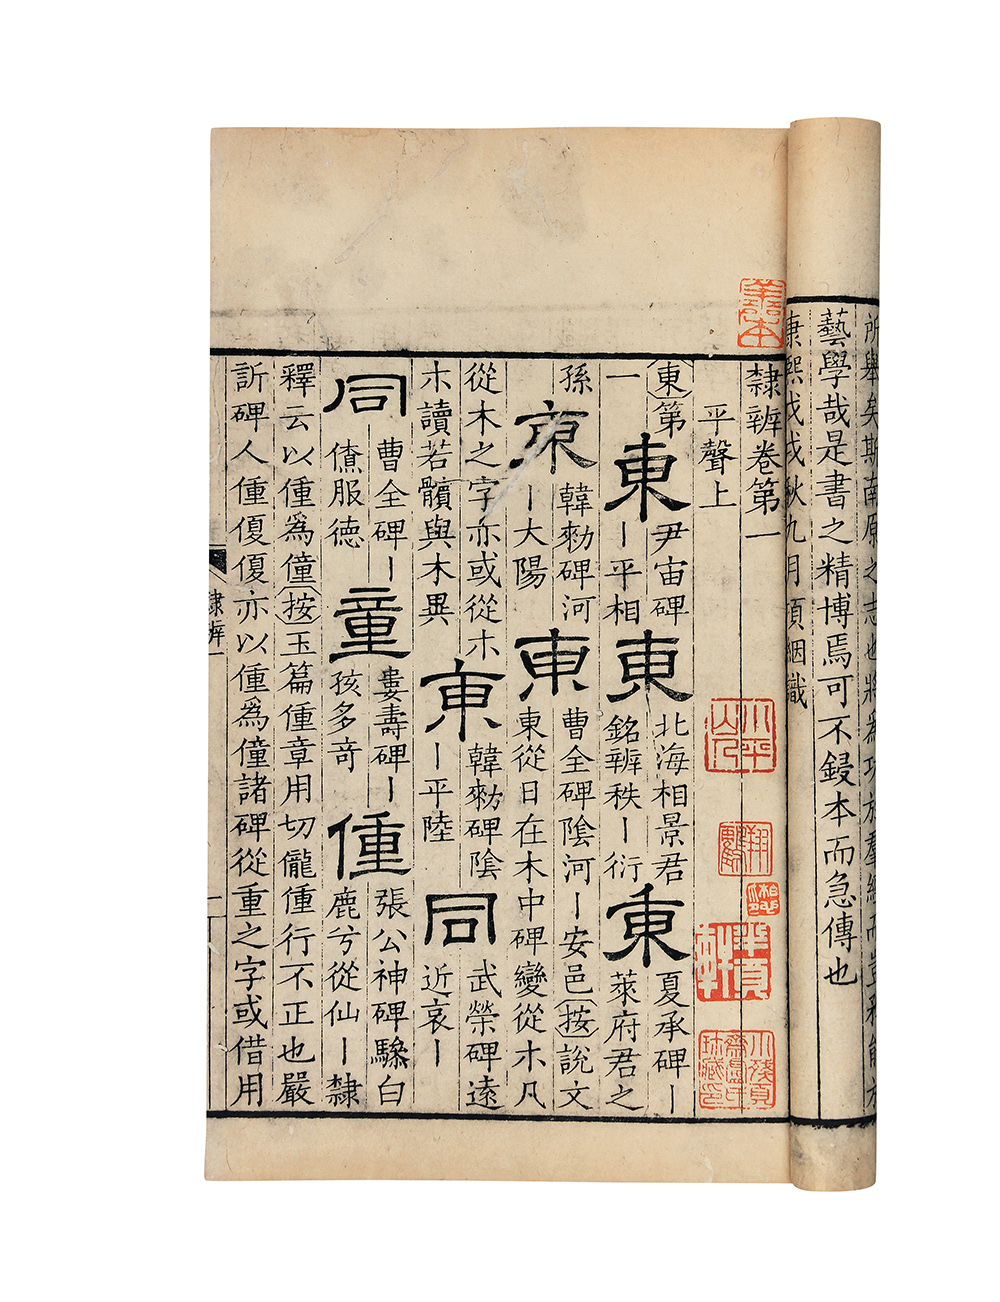 所舉矣斯南原之志也將為功於羣經而豈務能
藝學哉是書之精博焉可不鋟本而急傳也
康熙戊戌秋九月項絪識
隸辧卷第一
平聲上
東第一 東 尹宙碑丨平相 東 北海相景君銘辧秩丨衍 東 夏承碑丨萊府君之
孫 東 韓勑碑河丨大陽 東 曹全碑陰河丨安邑按說文東從日在木中碑變從朩凡
從木之字亦或從朩朩讀若髕與木異 東 韓勑碑陰丨平陸 同 武榮碑遠近哀丨
同 曹全碑丨儵服德 童 婁壽碑丨孩多奇 偅 張公神碑騄白鹿兮從仙丨隸
釋云以偅爲僮按玉篇偅章用切儱偅行不正也嚴
訢碑人偅優優亦以偅爲僮諸碑從重之字或借用
隸辧一
善本